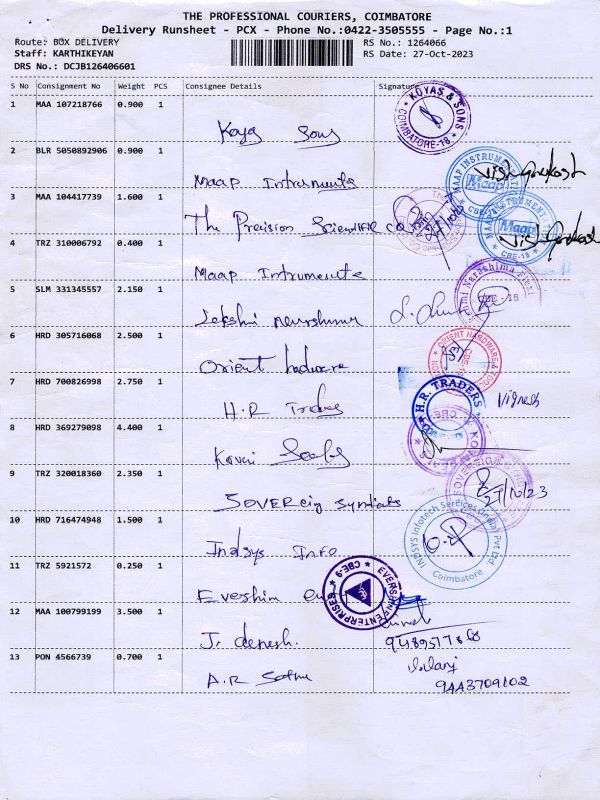 THE PROFESSIONAL COURIERS, COIMBATORE
Delivery Runsheet - PCX - Phone No.:0422-3505555 - Page No.:1
Route: BOX DELIVERY
RS No.: 1264066
Staff: KARTHIKEYAN
RS Date: 27-Oct-2023
DRS No.: DCJB126406601
S No Consignment No Weight PCS Consignee Details Signature
1 MAA 107218766 0.900 1
KOYAS & SONS COIMBATORE-18
Sons
2 BLR 5050892906 0.900 1
Maap Intruments
MAAP INSTRUMENTS Maap CBE-18
3 MAA 104417739 1.600 1
The Precision Scientific Co
4 TRZ 310006792 0.400 1
Maap Intruments
Maap CBE-18
5 SLM 331345557 2.150 1
CBE - 18
6 HRD 305716068 2.500 1
Orient hardware
ORIENT HARDWARE & TOOLS
7 HRD 700826998 2.750 1
H.R Traders
H.R. TRADERS
Vignesh
8 HRD 369279098 4.400 1
Kovai
9 TRZ 320018360 2.350 1
Sovereign
SOVEREIGN
27/10/23
10 HRD 716474948 1.500 1
Indsys Info
INDSYS Infotech Services (India) Pvt Ltd. Coimbatore
11 TRZ 5921572 0.250 1
ENTERPRISES CBE-9
12 MAA 100799199 3.500 1
J. denesh.
13 PON 4566739 0.700 1
A.R
9443709102